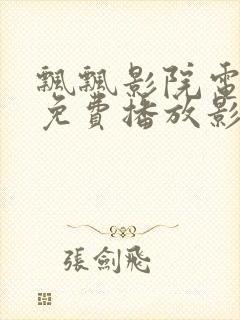 飄飄影院電
免費播放影
張劍飛